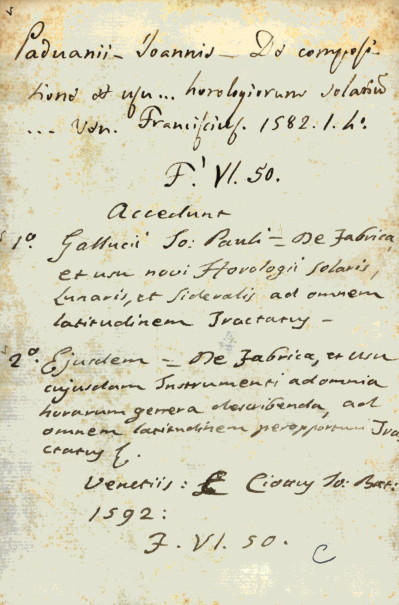 Paduanii - Joannis - De composi
tione et usu... horologiorum solariũ
... Ven. Francisciuſ. 1582. 1. 4º.
F. VI. 50.
Accedunt
1º. Gallucii Jo: Pauli - De Fabrica,
et usu novi Horologii Solaris,
Lunaris, et Sideralis ad omnem
latitudinem Tractatus -
2º. Ejusdem - De Fabrica, et usu
cujusdam Instrumenti ad omnia
horarum genera describenda, ad
omnem latitudinem peropportuni Tra,
ctatus
Venetiis: Ciottus Jo: Bat:
1592:
F. VI. 50.
C